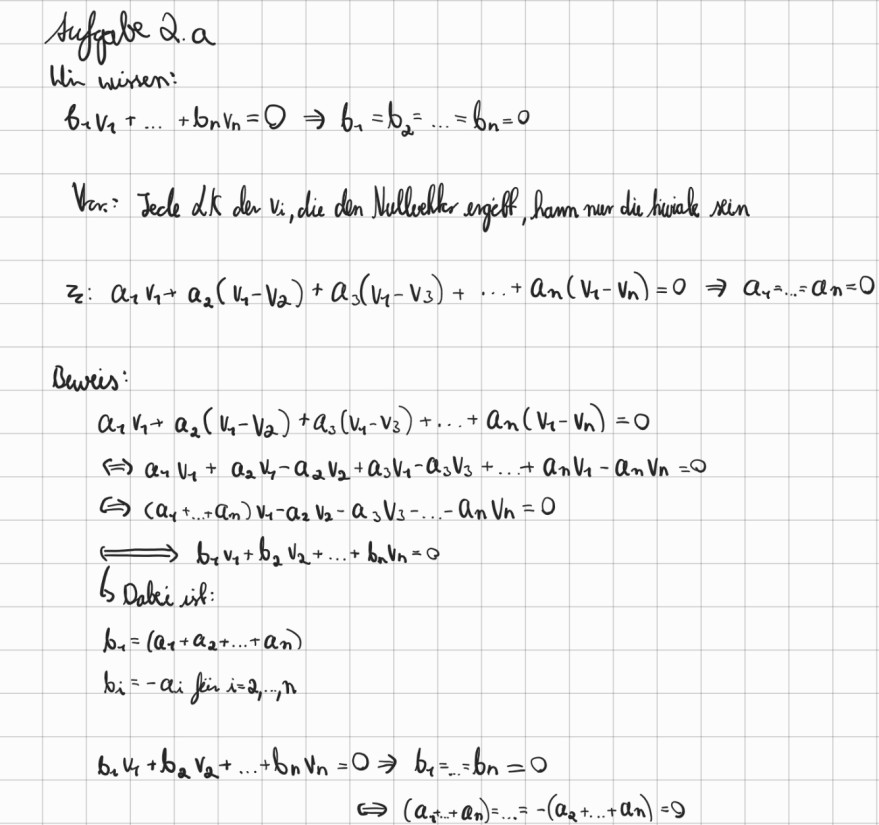 Aufgabe 2.a
Wir wissen:
b₁v₁ + ... + bₙvₙ = 0 ⇒ b₁ = b₂ = ... = bₙ = 0
Vor.: Jede LK der vᵢ, die den Nullvektor ergibt, kann nur die triviale sein
zz: a₁v₁ + a₂(v₁-v₂) + a₃(v₁-v₃) + ... + aₙ(v₁-vₙ) = 0 ⇒ a₁=...=aₙ=0
Beweis:
a₁v₁ + a₂(v₁-v₂) + a₃(v₁-v₃) + ... + aₙ(v₁-vₙ) = 0
⇔ a₁v₁ + a₂v₁ - a₂v₂ + a₃v₁ - a₃v₃ + ... + aₙv₁ - aₙvₙ = 0
⇔ (a₁+...+aₙ)v₁ - a₂v₂ - a₃v₃ - ... - aₙvₙ = 0
⟺ b₁v₁ + b₂v₂ + ... + bₙvₙ = 0
↳ Dabei ist:
b₁ = (a₁+a₂+...+aₙ)
bᵢ = -aᵢ für i=2,...,n
b₁v₁ + b₂v₂ + ... + bₙvₙ = 0 ⇒ b₁=...=bₙ = 0
⇔ (a₁+...+aₙ)=...= -(a₂+...+aₙ) = 0